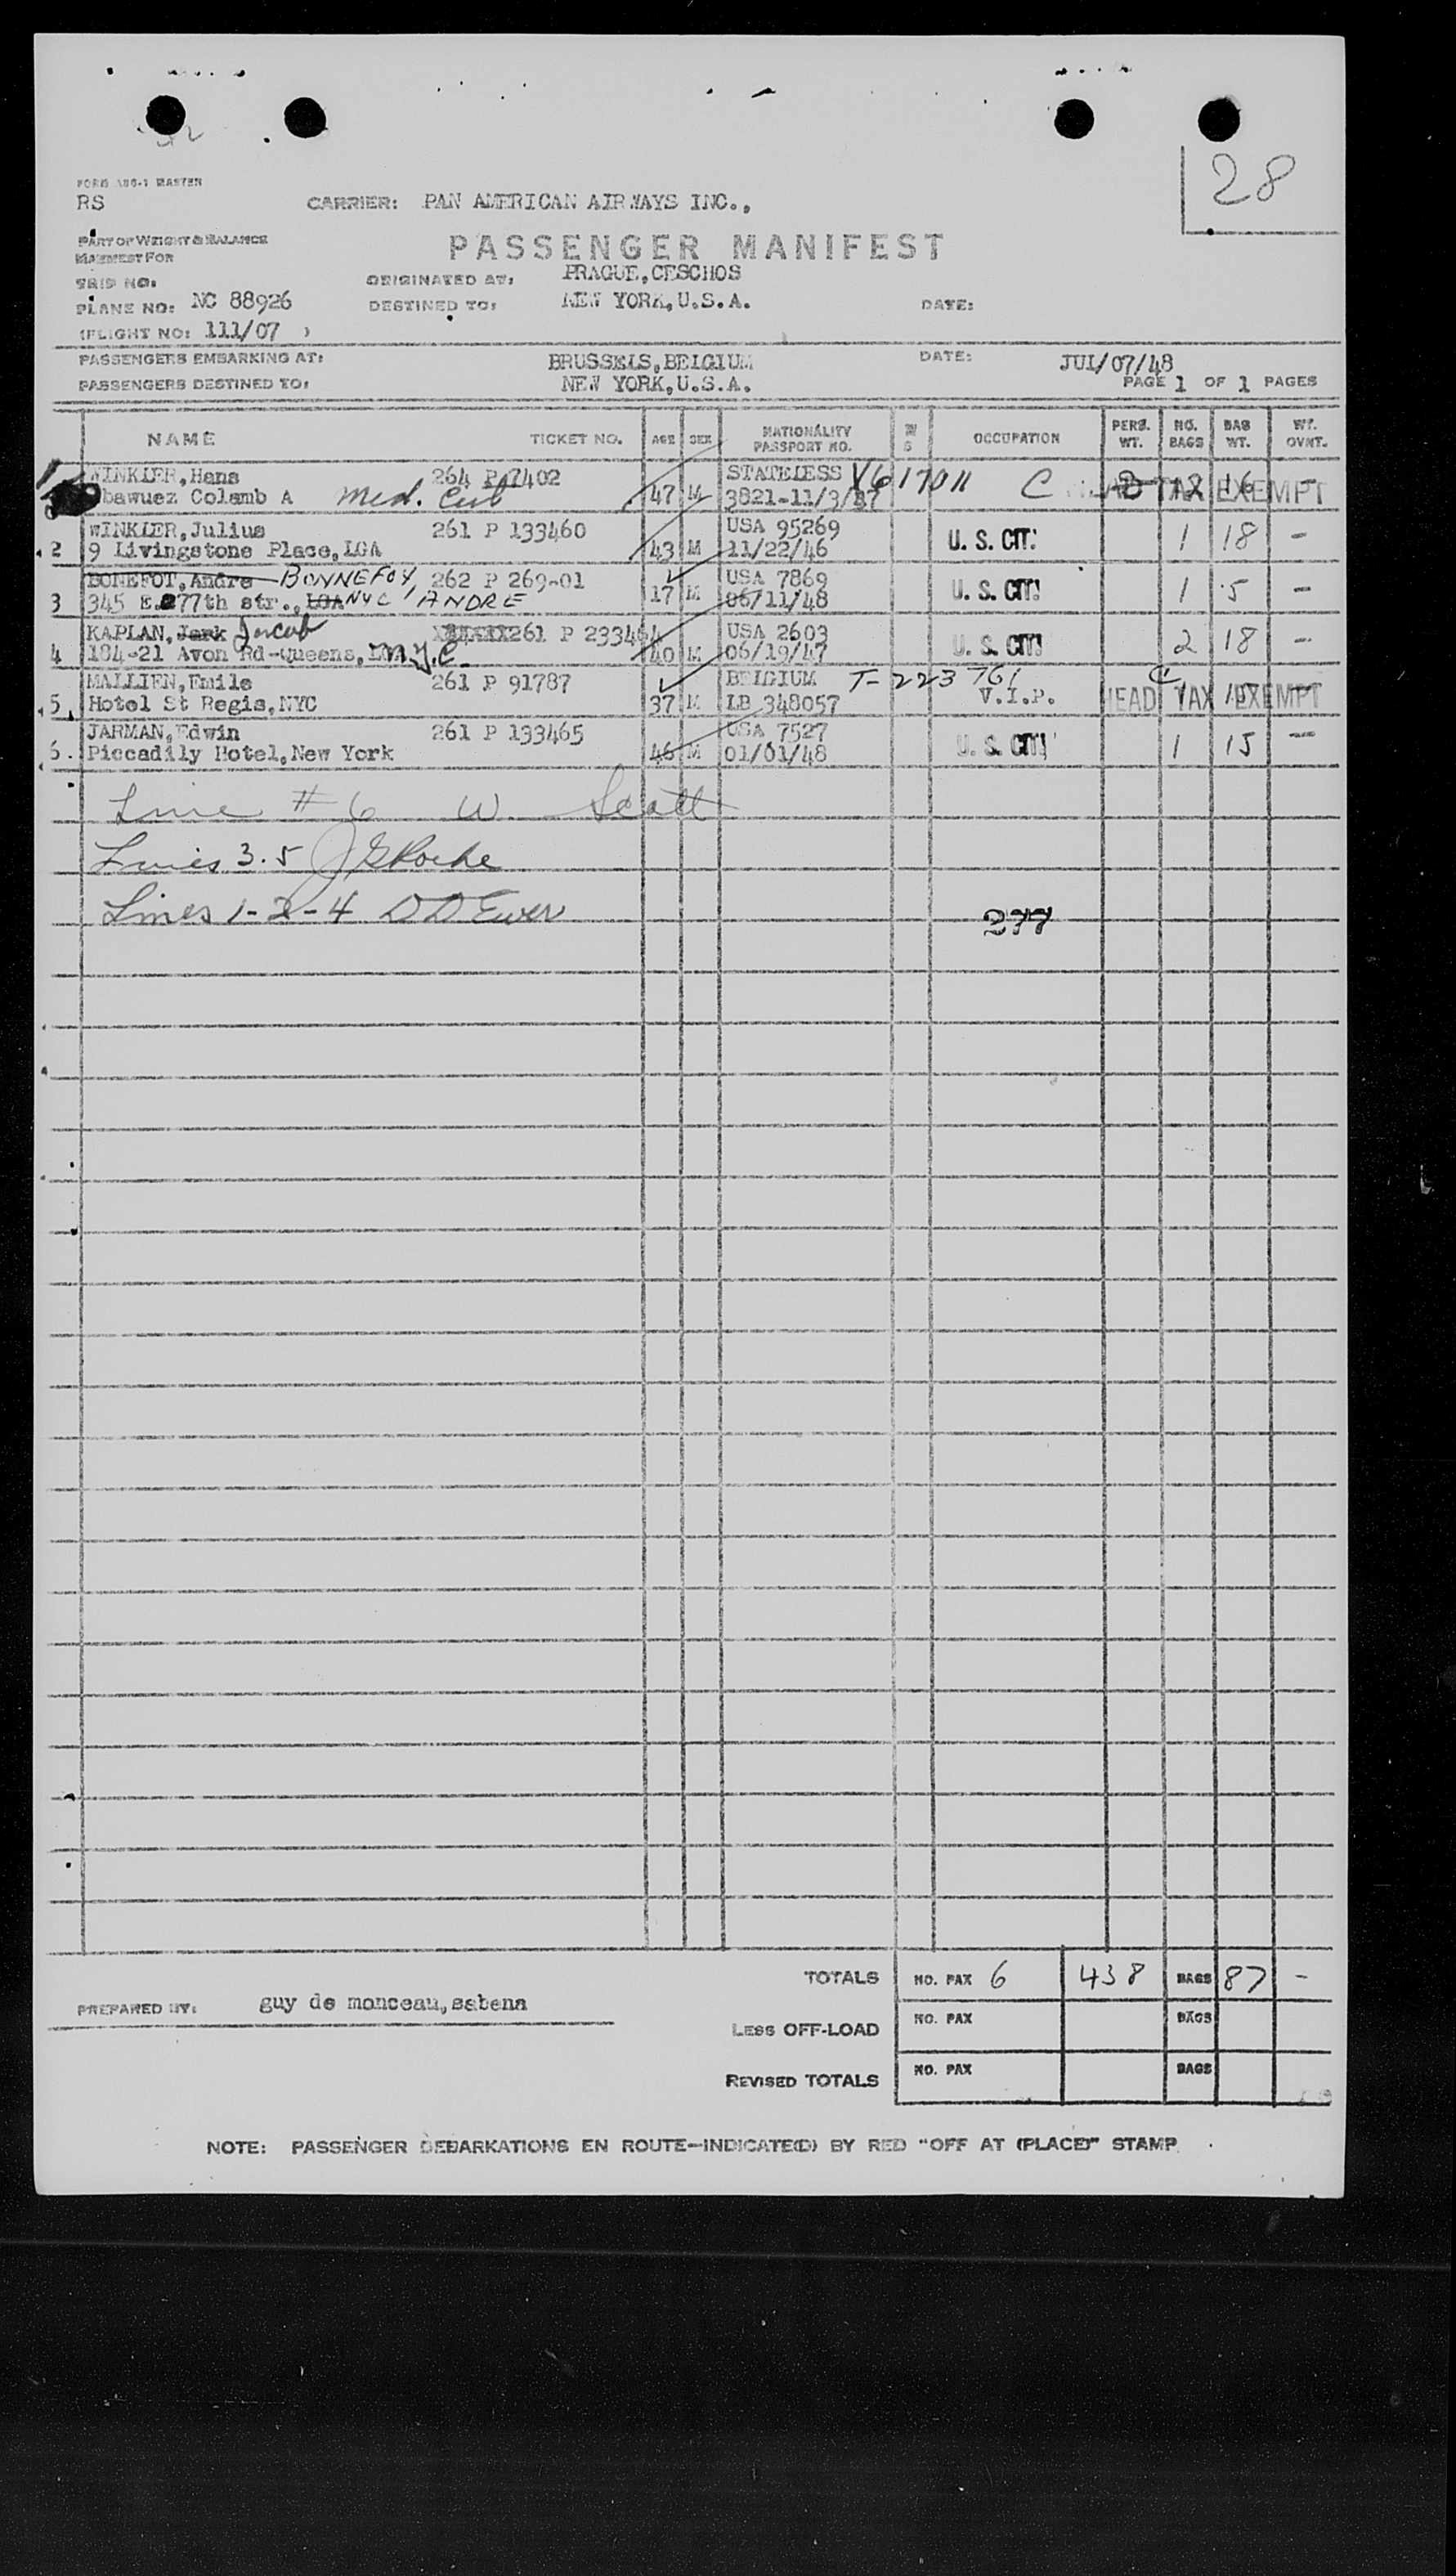 28
FORM 106-1 MASTER
RS
CARRIER: PAN AMERICAN AIRWAYS INC.,
PART OF WEIGHT & BALANCE
MANIFEST FOR
PASSENGER MANIFEST
TRIP NO:
ORIGINATED AT: PRAGUE, CESCHOS
PLANE NO: NC 88926
DESTINED TO: NEW YORK, U.S.A.
DATE:
(FLIGHT NO: 111/07 )
PASSENGERS EMBARKING AT: BRUSSELS, BELGIUM
DATE: JUL/07/48
PASSENGERS DESTINED TO: NEW YORK, U.S.A.
PAGE 1 OF 1 PAGES
NAME TICKET NO. AGE SEX NATIONALITY PASSPORT NO. OCCUPATION PERS. WT. NO. BAGS BAG WT. WT. OVNT.
1 WINKLER, Hans 264 P 7402 STATELESS V617011 C HEAD TAX EXEMPT 2 16 -
bawuez Colamb A Med. Cub 47 M 3821-11/3/37
WINKLER, Julius 261 P 133460 USA 95269
2 9 Livingstone Place, LGA 43 M 11/22/46 U. S. CIT. 1 18 -
BONEFOT, Andre BONNEFOY, 262 P 269-01 USA 7869
3 345 E. 77th str., LGA NYC ANDRE 17 M 06/11/48 U. S. CIT. 1 5 -
KAPLAN, Jark Jacob 261 P 233464 USA 2603
4 184-21 Avon Rd-Queens, N.Y.C. 40 M 06/19/47 U. S. CIT. 2 18 -
MALLIEN, Emile 261 P 91787 BELGIUM T-223761 C
5 Hotel St Regis, NYC 37 M LB 348057 V.I.P. HEAD TAX EXEMPT 1 15 -
JARMAN, Edwin 261 P 133465 USA 7527
6. Piccadily Hotel, New York 46 M 01/01/48 U. S. CIT. 1 15 -
Line # 6 W. Scott
Lines 3.5 J G Roche
Lines 1-2-4 D D Ewer
277
TOTALS NO. PAX 6 438 BAGS 87 -
PREPARED BY: guy de monceau, sabena
LESS OFF-LOAD NO. PAX BAGS
REVISED TOTALS NO. PAX BAGS
NOTE: PASSENGER DEBARKATIONS EN ROUTE—INDICATE(D) BY RED "OFF AT (PLACE)" STAMP